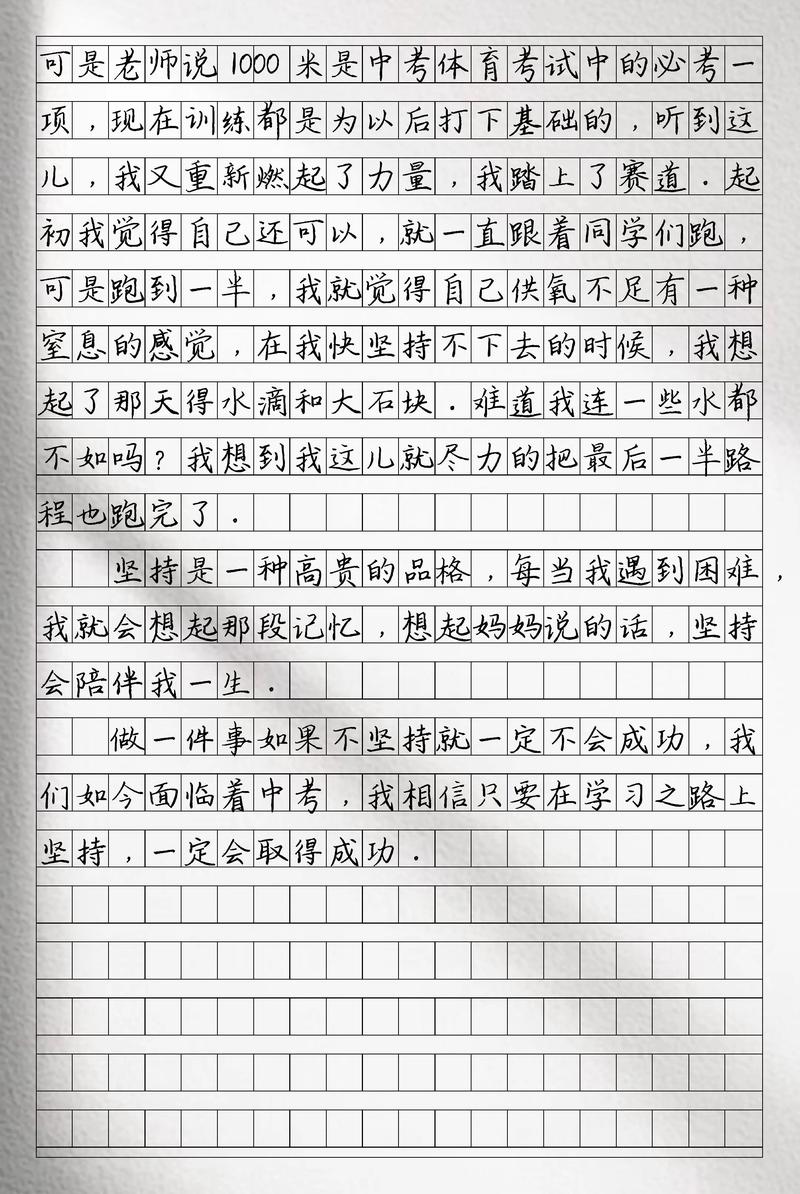 可是老师说1000米是中考体育考试中的必考一
项，现在训练都是为以后打下基础的，听到这
儿，我又重新燃起了力量，我踏上了赛道．起
初我觉得自己还可以，就一直跟着同学们跑，
可是跑到一半，我就觉得自己供氧不足有一种
窒息的感觉，在我快坚持不下去的时候，我想
起了那天得水滴和大石块．难道我连一些水都
不如吗？我想到我这儿就尽力的把最后一半路
程也跑完了．
坚持是一种高贵的品格，每当我遇到困难，
我就会想起那段记忆，想起妈妈说的话，坚持
会陪伴我一生．
做一件事如果不坚持就一定不会成功，我
们如今面临着中考，我相信只要在学习之路上
坚持，一定会取得成功．